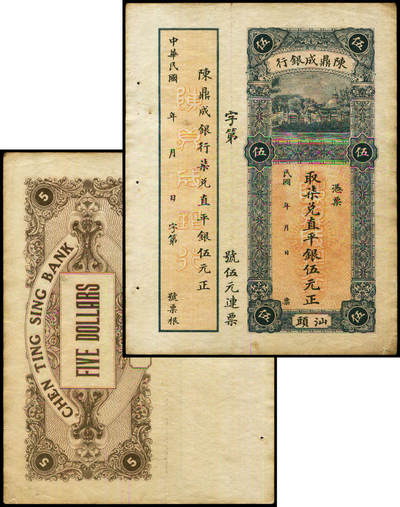 中華民國 年 月 日 字第 號票根
陳鼎成銀行柒兑直平銀伍元正
字第 號伍元連票
伍 伍
陳鼎成銀行
伍 伍
憑票
取柒兑直平銀伍元正
民國 年 月 日 票
伍 伍
汕頭
5 5
CHEN TING SING BANK
FIVE DOLLARS
5 5